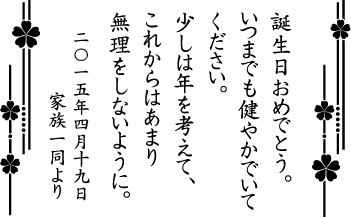 誕生日おめでとう。
いつまでも健やかでいて
ください。
少しは年を考えて、
これからはあまり
無理をしないように。
二〇一五年四月十九日
家族一同より